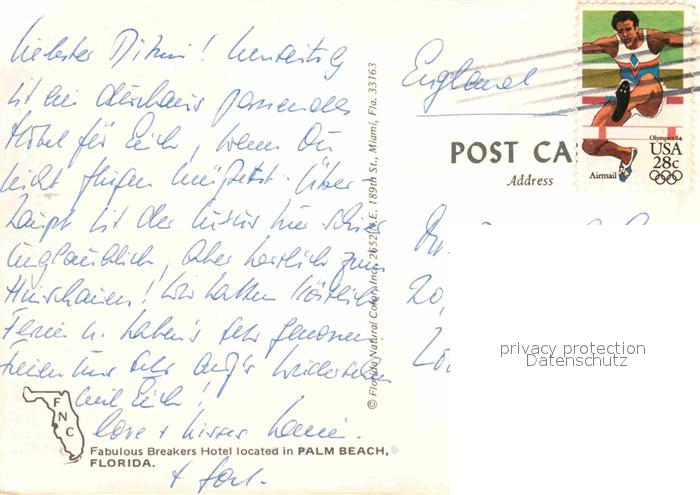 Liebster Dimi! Umseitig
ist ein durchaus passendes
Hotel für Euch, wenn Du
nicht fliegen müßtest. Über-
haupt ist der Luxus hier schier
unglaublich, aber herrlich zum
Hinschauen! Wir hatten köstliche
Ferien u. haben's sehr genossen.
freuen uns sehr auf's Wiedersehen
mit Euch!
love + kisses
+
FNC
Fabulous Breakers Hotel located in PALM BEACH,
FLORIDA.
© Florida Natural Color, Inc., 2652 N.E. 189th St., Miami, Fla. 33163
England
POST CA
Address
Olympics 84
USA
28c
Airmail
20,
privacy protection
Datenschutz